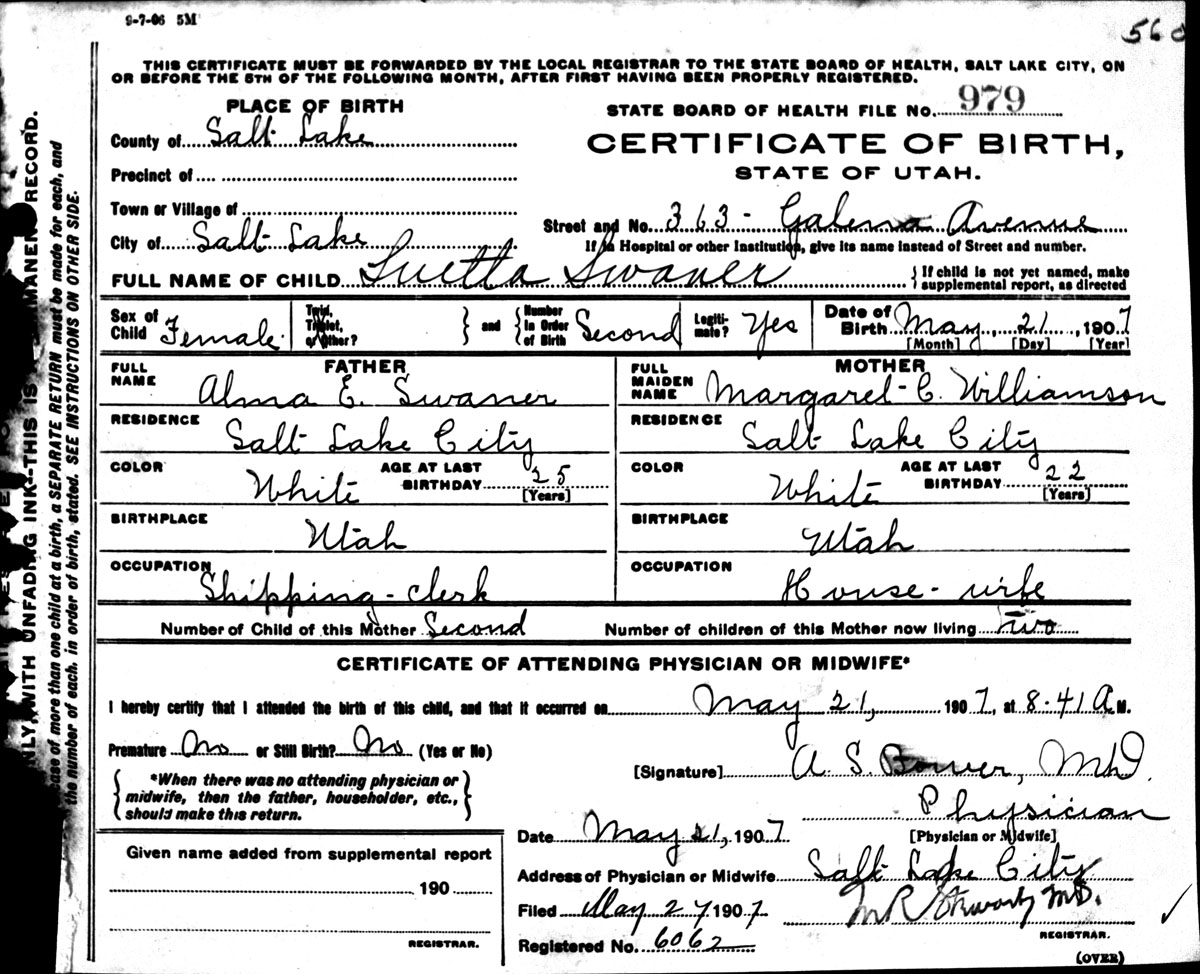 9-7-06 5M
560
THIS CERTIFICATE MUST BE FORWARDED BY THE LOCAL REGISTRAR TO THE STATE BOARD OF HEALTH, SALT LAKE CITY, ON
OR BEFORE THE 5TH OF THE FOLLOWING MONTH, AFTER FIRST HAVING BEEN PROPERLY REGISTERED.
PLACE OF BIRTH
County of Salt Lake
Precinct of
Town or Village of
City of Salt Lake
STATE BOARD OF HEALTH FILE No. 979
CERTIFICATE OF BIRTH,
STATE OF UTAH.
Street and No. 363 - Galena Avenue
If in Hospital or other Institution, give its name instead of Street and number.
FULL NAME OF CHILD Luetta Swaner
{ If child is not yet named, make
supplemental report, as directed
Sex of Child Female
Twin, Triplet, or Other?
} and { Number in Order of Birth Second
Legiti-mate? Yes
Date of Birth May 21, 1907
[Month] [Day] [Year]
FATHER
FULL NAME Alma E. Swaner
RESIDENCE Salt Lake City
COLOR White AGE AT LAST BIRTHDAY 25 [Years]
BIRTHPLACE Utah
OCCUPATION Shipping-clerk
MOTHER
FULL MAIDEN NAME Margaret C. Williamson
RESIDENCE Salt Lake City
COLOR White AGE AT LAST BIRTHDAY 22 [Years]
BIRTHPLACE Utah
OCCUPATION House-wife
Number of Child of this Mother Second Number of children of this Mother now living Two
CERTIFICATE OF ATTENDING PHYSICIAN OR MIDWIFE*
I hereby certify that I attended the birth of this child, and that it occurred on May 21, 1907, at 8-41 A M.
Premature No or Still Birth? No (Yes or No)
{ *When there was no attending physician or
midwife, then the father, householder, etc.,
should make this return. }
[Signature] A. S. Bower, M.D.
Physician
[Physician or Midwife]
Date May 21, 1907
Address of Physician or Midwife Salt Lake City
Filed May 27 1907
M.D.
REGISTRAR.
Registered No. 6062
(OVER)
Given name added from supplemental report
190
REGISTRAR.
ONLY WITH UNFADING INK--THIS IS RECORD.
case of more than one child at a birth, a SEPARATE RETURN must be made for each, and
the number of each, in order of birth, stated. SEE INSTRUCTIONS ON OTHER SIDE.